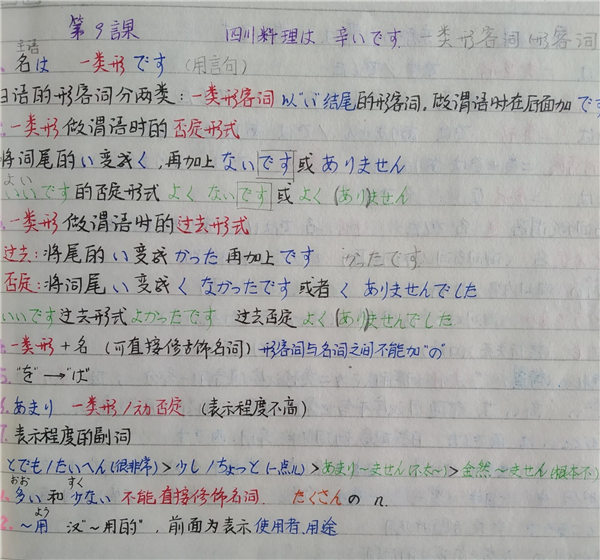 第9課 四川料理は 辛いです 一类形容词(形容词
主语
名は 一类形です (用言句)
日语的形容词分两类:一类形容词 以"い"结尾的形容词,做谓语时在后面加です
一类形做谓语时的否定形式
将词尾的い变成く,再加上 ないです或 ありません
よい
いいです的否定形式 よくないです或 よく(あり)ません
一类形做谓语时的过去形式
过去:将尾的い变成かった再加上です かったです
否定:将词尾い变成くなかったです 或者く ありませんでした
いいです过去形式よかったです 过去否定 よく(あり)ませんでした
一类形+名 (可直接修饰名词) 形容词与名词之间不能加"の"
5. "を"→"は"
6.あまり 一类形/动否定 (表示程度不高)
7.表示程度的副词
とでも/たいへん(很非常)>少し/ちょっと(一点儿)>あまり~ません(不太~)>全然~ません(根本不)
おお すく
多い和少ない 不能直接修饰名词. たくさんの n.
よう
2.~用 汉"~用的",前面为表示使用者,用途